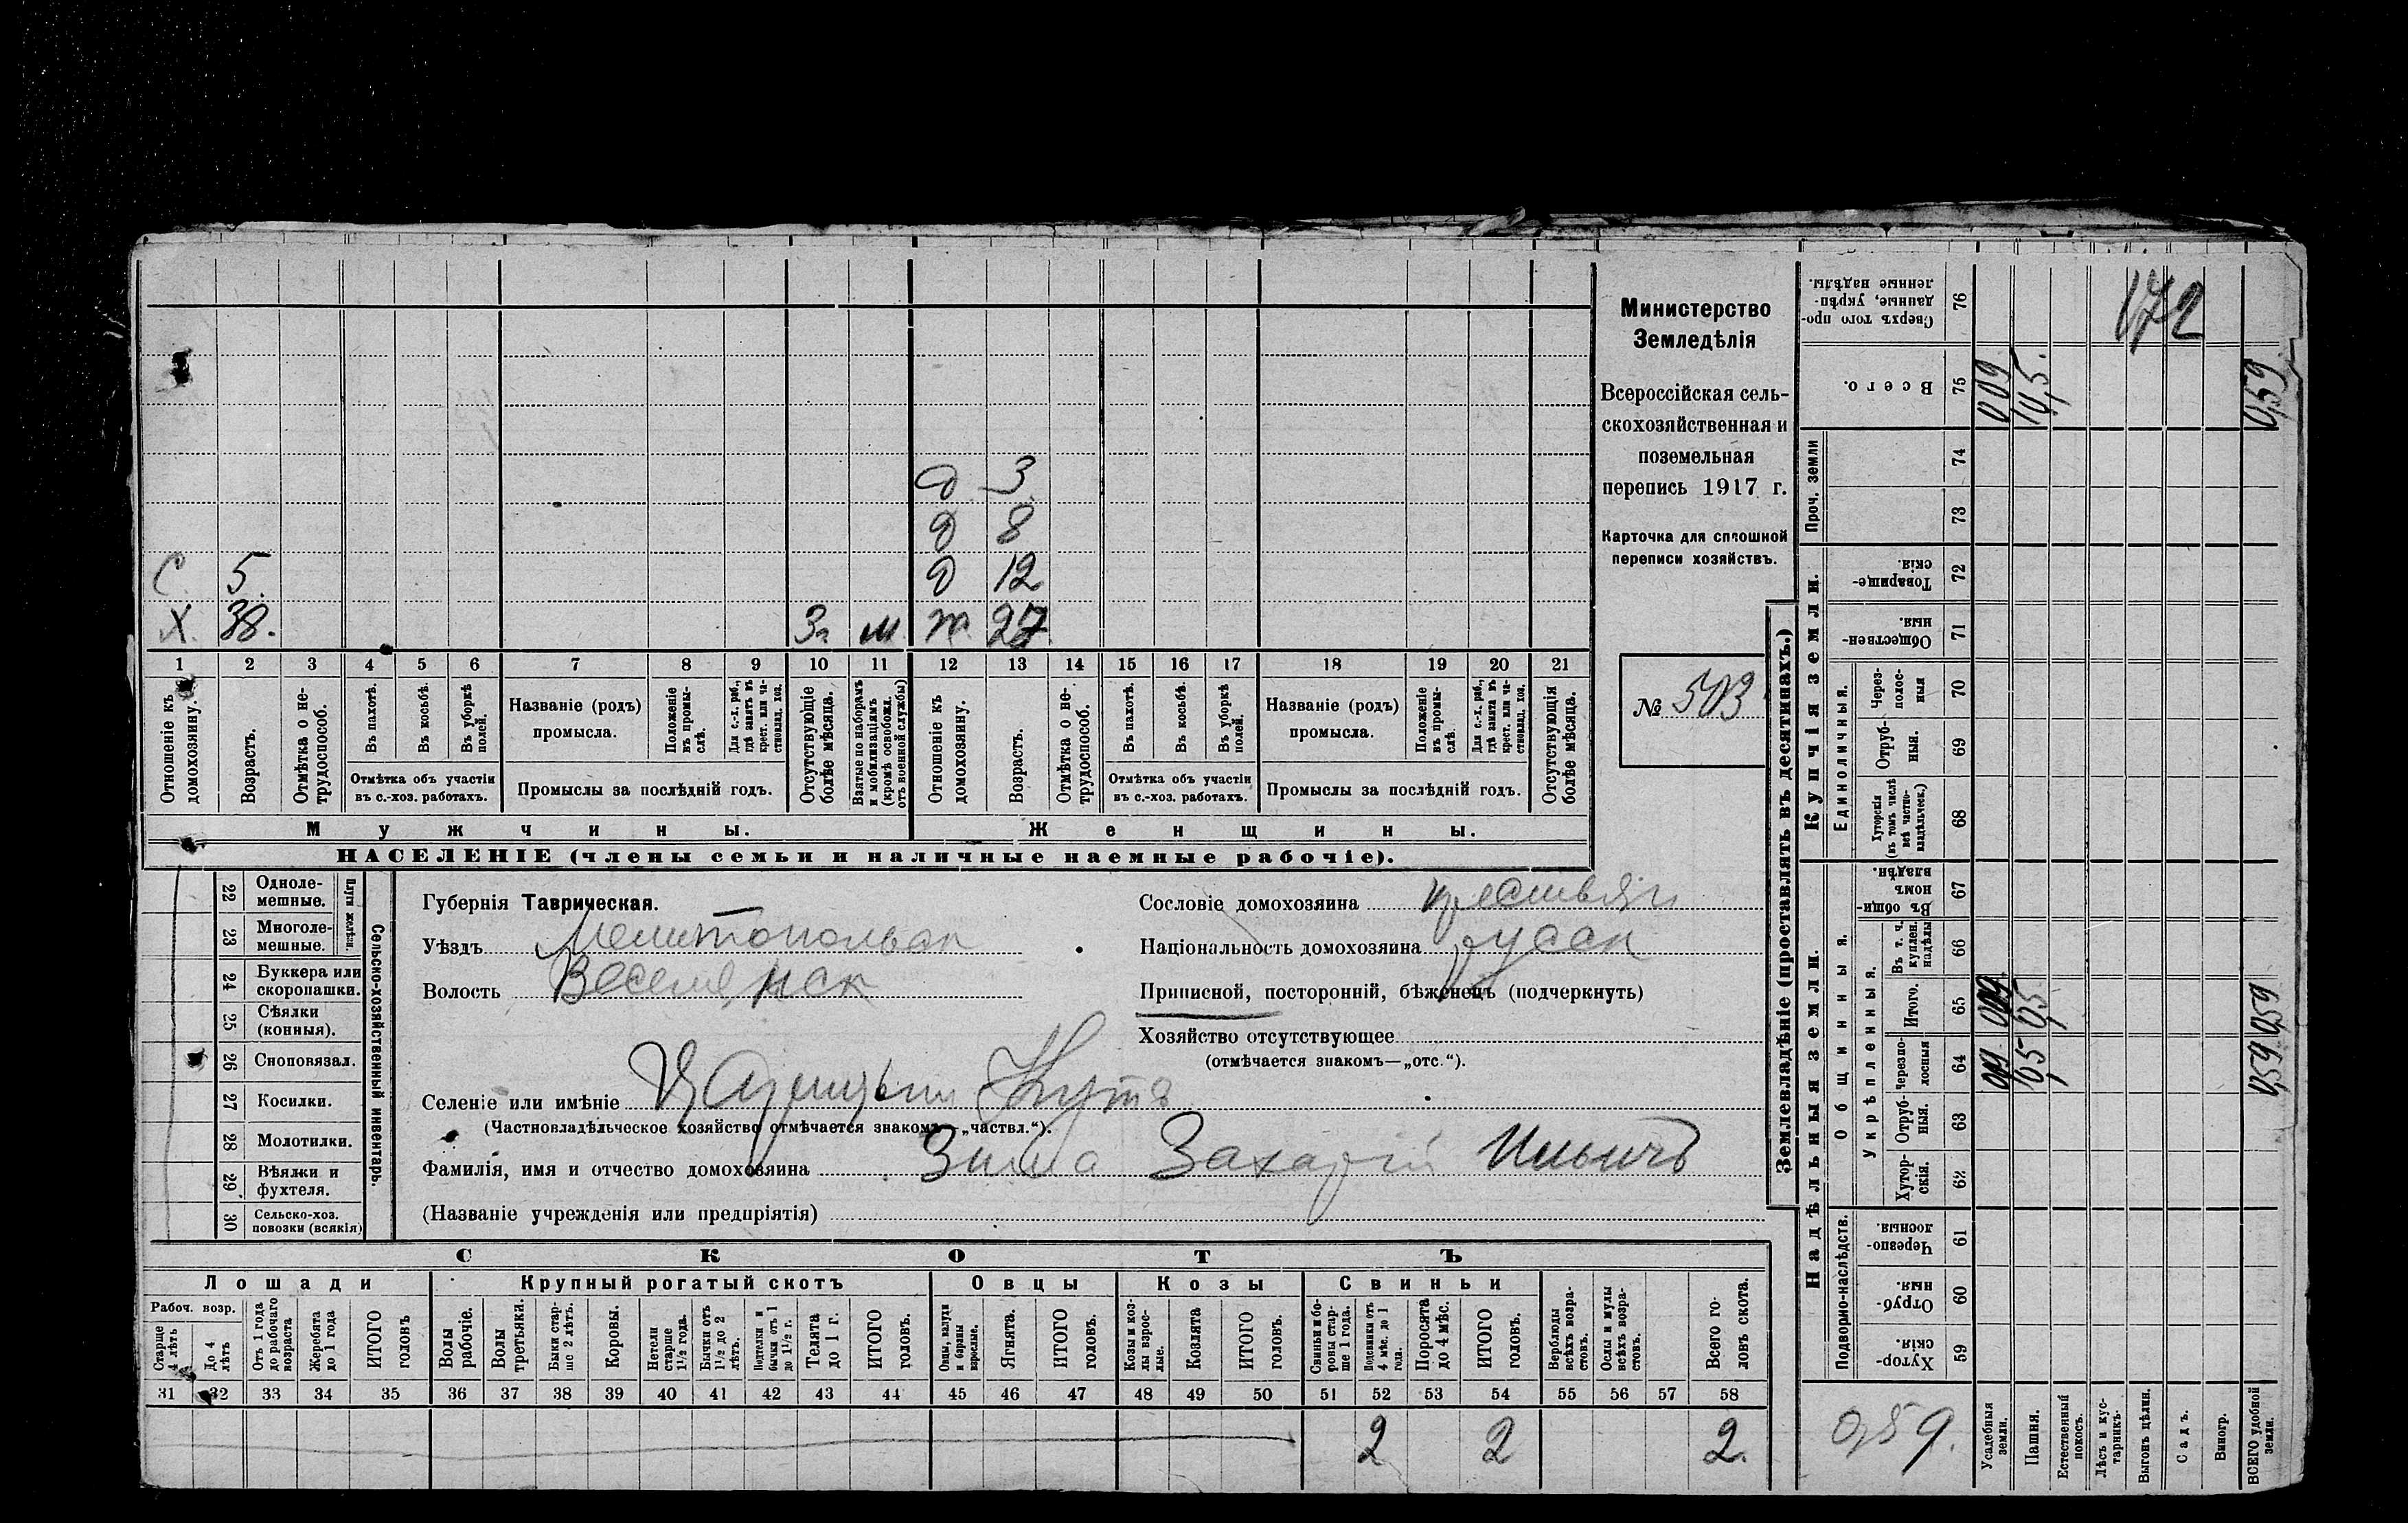 Д 3
Д 8
С 5. Д 12
Х. 38. 3 м ж. 27
1 2 3 4 5 6 7 8 9 10 11 12 13 14 15 16 17 18 19 20 21
Отношеніе къ домохозяину.
Возрастъ.
Отмѣтка о нетрудоспособ.
Въ пахотѣ.
Въ косьбѣ.
Въ уборкѣ полей.
Отмѣтка объ участіи
въ с.-хоз. работахъ.
Названіе (родъ)
промысла.
Положеніе въ промыслѣ.
Для с.-х. раб., гдѣ занятъ въ крест. или частновлад. хоз.
Промыслы за послѣдній годъ.
Отсутствующіе болѣе мѣсяца.
Взятые по наборамъ и мобилизаціямъ (кромѣ освобожд. отъ военной службы)
Отношеніе къ домохозяину.
Возрастъ.
Отмѣтка о нетрудоспособ.
Въ пахотѣ.
Въ косьбѣ.
Въ уборкѣ полей.
Отмѣтка объ участіи
въ с.-хоз. работахъ.
Названіе (родъ)
промысла.
Положеніе въ промыслѣ.
Для с.-х. раб., гдѣ занята въ крест. или частновлад. хоз.
Промыслы за послѣдній годъ.
Отсутствующія болѣе мѣсяца.
Мужчины. Женщины.
НАСЕЛЕНІЕ (члены семьи и наличные наемные рабочіе).
Министерство
Земледѣлія
Всероссійская сель-
скохозяйственная и
поземельная
перепись 1917 г.
Карточка для сплошной
переписи хозяйствъ.
№ 503
22 Одноле-
мешные.
23 Многоле-
мешные.
Плуги желѣзн.
24 Буккера или
скоропашки.
25 Сѣялки
(конныя).
26 Сноповязал.
27 Косилки.
28 Молотилки.
29 Вѣялки и
фухтеля.
30 Сельско-хоз.
повозки (всякія)
Сельско-хозяйственный инвентарь.
Губернія Таврическая.
Уѣздъ Мелитопольск
Волость Веселянск
Сословіе домохозяина крестьян
Національность домохозяина русск
Приписной, посторонній, бѣженецъ (подчеркнуть)
Хозяйство отсутствующее
(отмѣчается знакомъ—„отс.“).
Селеніе или имѣніе
(Частновладѣльческое хозяйство отмѣчается знакомъ—„частвл.“).
Фамилія, имя и отчество домохозяина Зима Захарій Ильичъ
(Названіе учрежденія или предпріятія)
СКОТЪ
Лошади Крупный рогатый скотъ Овцы Козы Свиньи
Рабоч. возр.
Старше 4 лѣтъ
До 4 лѣтъ
Отъ 1 года до рабочаго возраста
Жеребята до 1 года
ИТОГО головъ
Волы рабочіе.
Волы третьяки.
Быки старше 2 лѣтъ.
Коровы.
Нетели старше 1½ года.
Бычки отъ 1½ до 2 лѣтъ.
Подтелки и бычки отъ 1 до 1½ г.
Телята до 1 г.
ИТОГО головъ.
Овцы, валухи и бараны взрослые.
Ягнята.
ИТОГО головъ.
Козы и козлы взрослые.
Козлята
ИТОГО головъ.
Свиньи и боровы старше 1 года.
Подсвинки отъ 4 мѣс. до 1 года.
Поросята до 4 мѣс.
ИТОГО головъ.
Верблюды всѣхъ возрастовъ.
Ослы и мулы всѣхъ возрастовъ.
Всего головъ скота.
31 32 33 34 35 36 37 38 39 40 41 42 43 44 45 46 47 48 49 50 51 52 53 54 55 56 57 58
2 2 2.
Землевладѣніе (проставлять въ десятинахъ.)
Купчія земли.
Надѣльныя земли.
Сверхъ того проданные, укрѣпленные надѣлы. 76
172
Всего. 75 0 09 0,5. 0,59
Проч. земли
74
73
Товарищескія. 72
Общественныя. 71
Единоличныя.
Черезполосныя 70
Отрубныя. 69
Хуторскія (въ томъ числѣ всѣ частновладѣльческ.) 68
Общинныя.
Въ общинномъ владѣн. 67
Укрѣпленныя.
Въ т. ч. куплен. надѣлы 66
Итого. 65 009 0,5 0,59
Черезполосныя 64 0,5 0,59
Отрубныя. 63
Хуторскія. 62
Подворно-наслѣдств.
Черезполосныя. 61
Отрубныя. 60
Хуторскія. 59
0,59.
Усадебныя земли.
Пашня.
Естественный покосъ.
Лѣсъ и кустарникъ.
Выгонъ цѣлин.
Садъ.
Виногр.
ВСЕГО удобной земли.